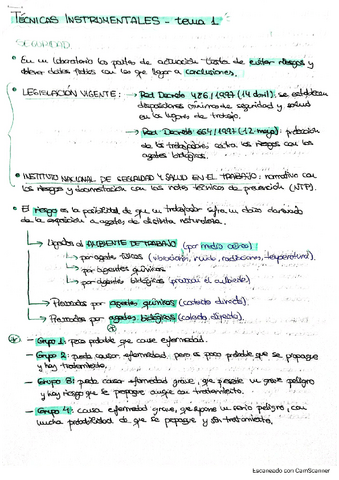 TÉCNICAS INSTRUMENTALES - tema 1
SEGURIDAD
• En un laboratorio las pautas de actuación tratan de evitar riesgos y
obtener datos fiables con los que llegar a conclusiones.
• LEGISLACIÓN VIGENTE: → Real Decreto 486/1997 (14 abril): se establecen
disposiciones mínimas de seguridad y salud
en los lugares de trabajo.
→ Real Decreto 664/1997 (12 mayo): protección
de los trabajadores contra los riesgos con los
agentes biológicos.
• INSTITUTO NACIONAL DE SEGURIDAD Y SALUD EN EL TRABAJO: normativa con
los riesgos y documentación con las notas técnicas de prevención (NTP).
• El riesgo es la posibilidad de que un trabajador sufra un daño derivado
de la exposición a agentes de distinta naturaleza.
→ Ligados al AMBIENTE DE TRABAJO (por medio aéreo)
→ por agentes físicos (vibraciones, ruido, radiaciones, temperatura)
→ por agentes químicos
→ por agentes biológicos (el ambiente)
→ Provocados por agentes químicos (contacto directo).
→ Provocados por agentes biológicos (contacto directo).
- Grupo 1: poco probable que cause enfermedad.
- Grupo 2: puede causar enfermedad, pero es poco probable que se propague
y hay tratamiento.
- Grupo 3: puede causar enfermedad grave, que presente un grave peligro
y hay riesgo que se propague aunque con tratamiento.
- Grupo 4: causa enfermedad grave, que supone un serio peligro, con
mucha probabilidad de que se propague y sin tratamiento.
Escaneado con CamScanner